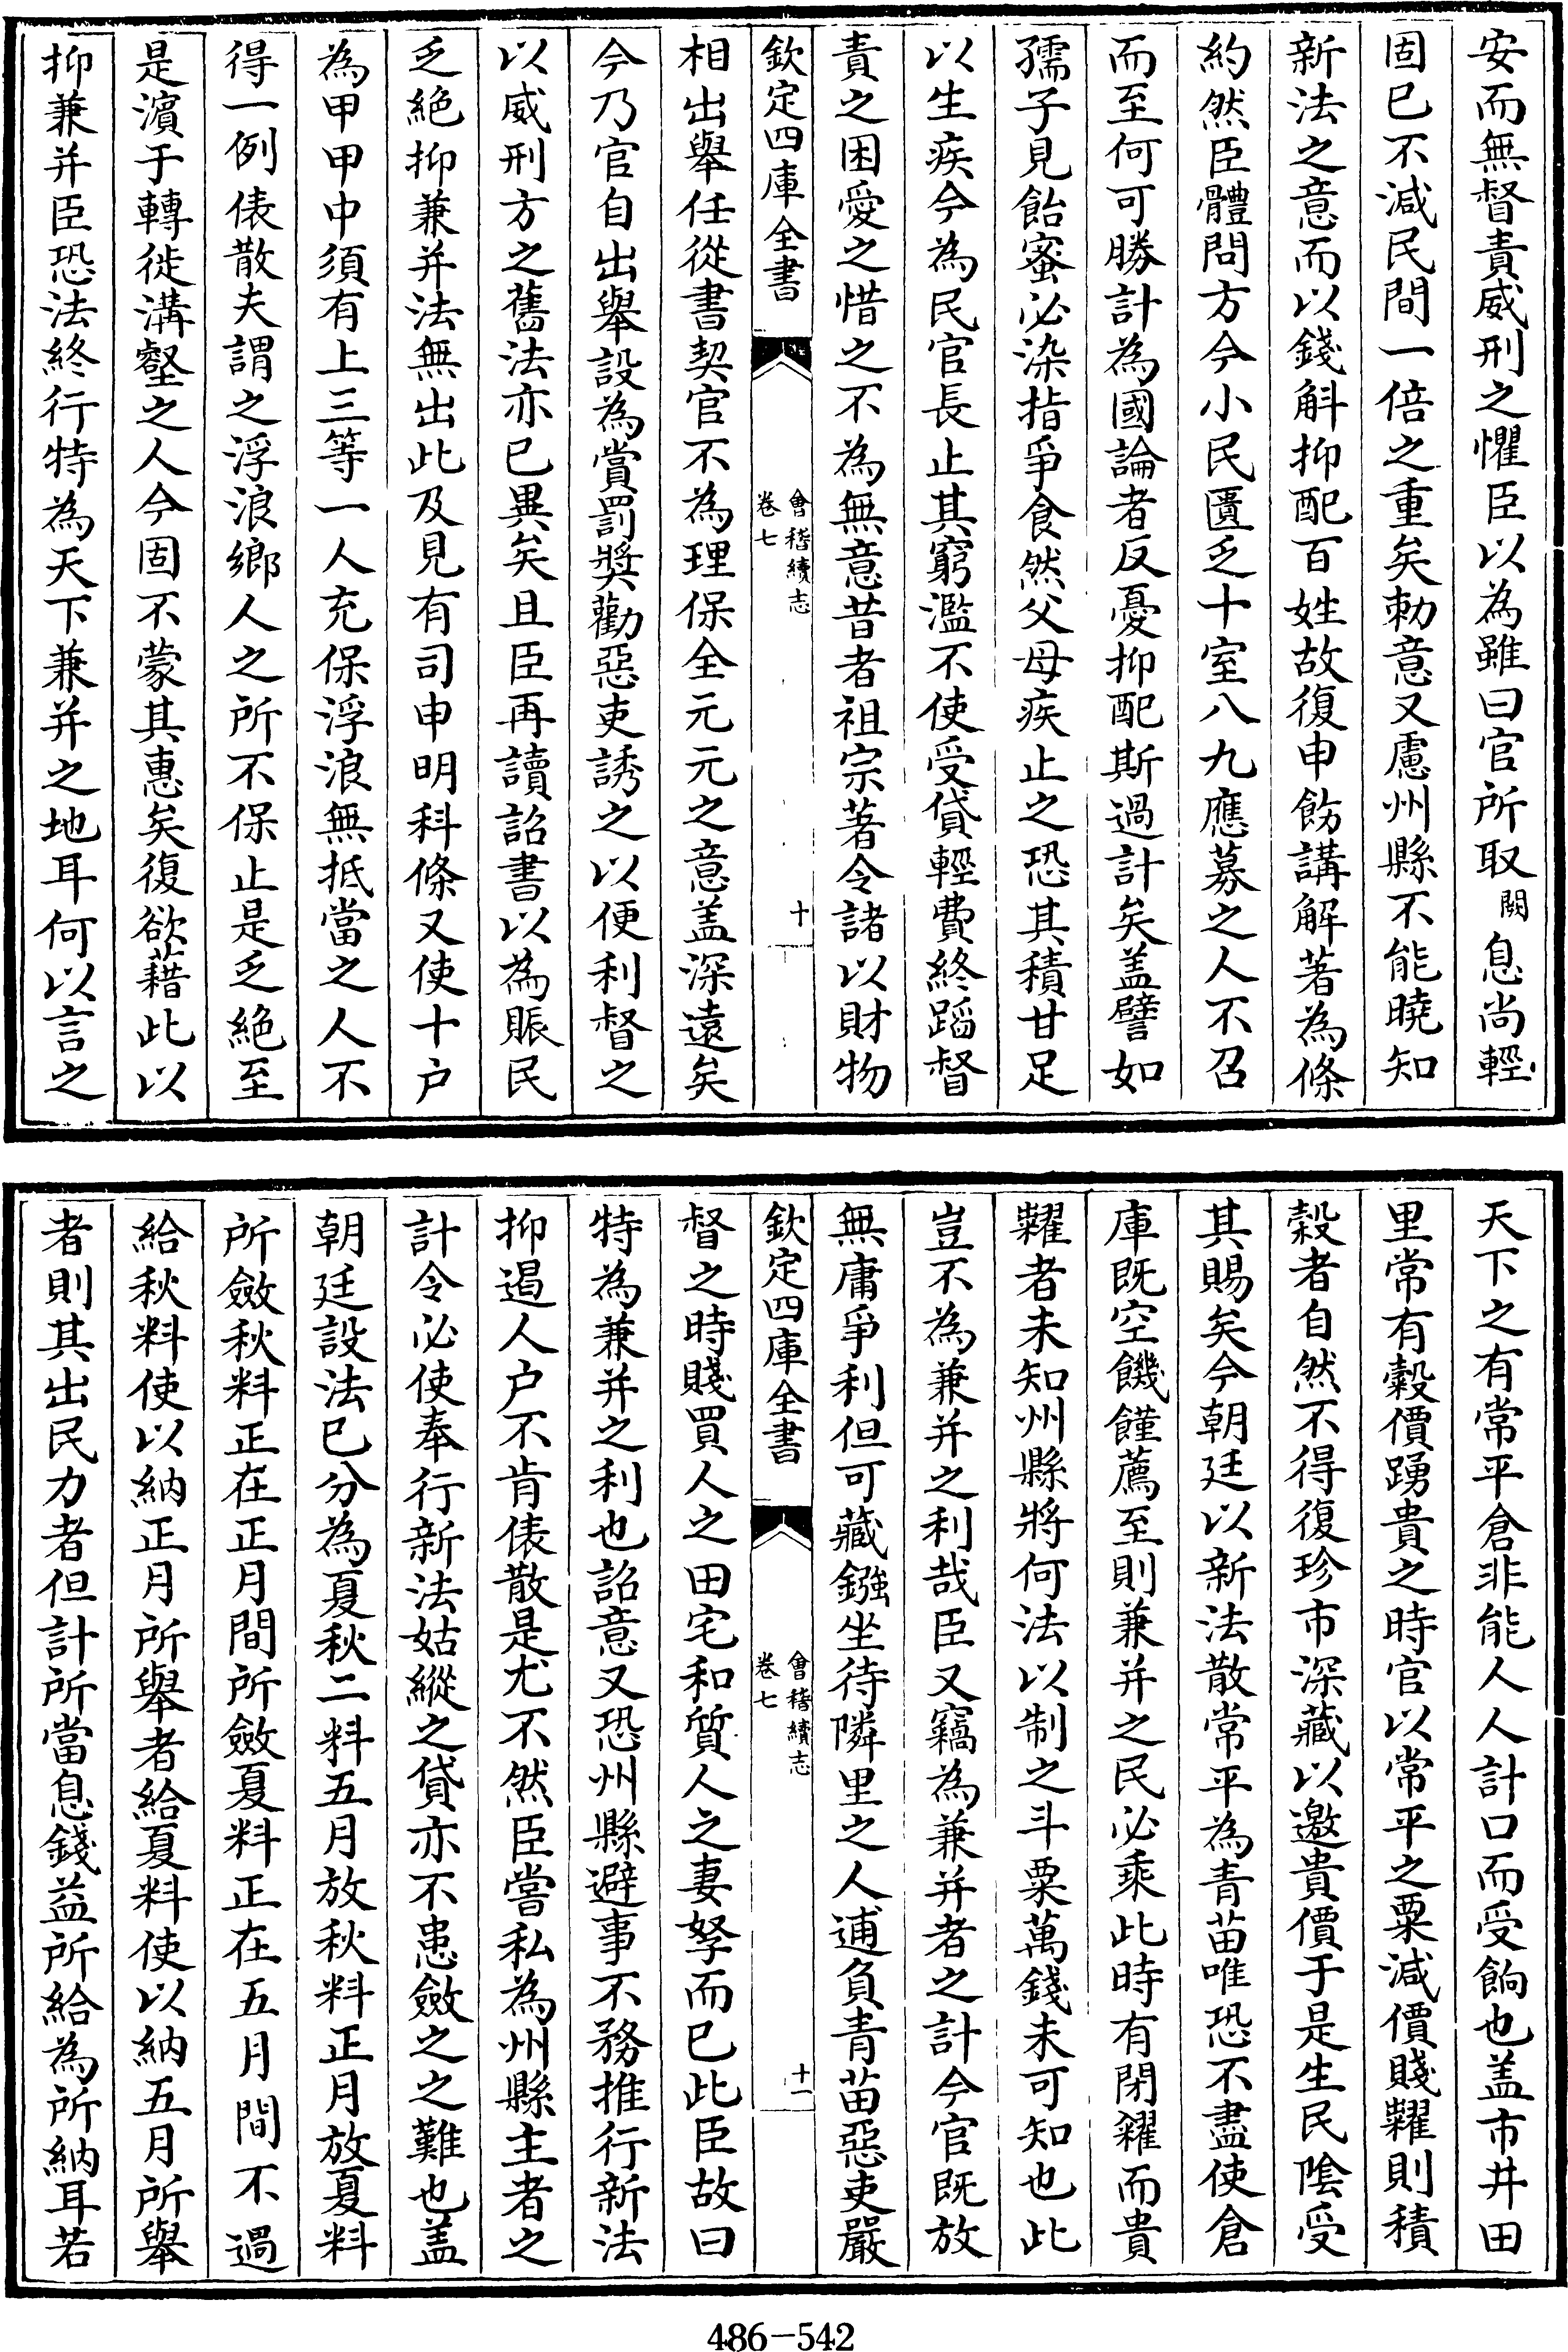 安而無督責威刑之懼臣以為雖曰官所取闕息尚輕
固已不減民間一倍之重矣勅意又慮州縣不能曉知
新法之意而以錢斛抑配百姓故復申飭講解著為條
約然臣體問方今小民匱乏十室八九應募之人不召
而至何可勝計為國論者反憂抑配斯過計矣盖譬如
孺子見飴蜜必染指爭食然父母疾止之恐其積甘足
以生疾今為民官長止其窮濫不使受貸輕費終蹈督
責之困愛之惜之不為無意昔者祖宗著令諸以財物
欽定四庫全書
會稽續志
卷七
十
相出舉任從書契官不為理保全元元之意盖深遠矣
今乃官自出舉設為賞罰奬勸惡吏誘之以便利督之
以威刑方之舊法亦已異矣且臣再讀詔書以為賑民
乏絕抑兼并法無出此及見有司申明科條又使十户
為甲甲中須有上三等一人充保浮浪無抵當之人不
得一例俵散夫謂之浮浪鄉人之所不保止是乏絕至
是濵于轉徙溝壑之人今固不蒙其惠矣復欲藉此以
抑兼并臣恐法終行特為天下兼并之地耳何以言之
天下之有常平倉非能人人計口而受餉也盖市井田
里常有穀價踴貴之時官以常平之粟減價賤糶則積
穀者自然不得復珍市深藏以邀貴價于是生民陰受
其賜矣今朝廷以新法散常平為青苗唯恐不盡使倉
庫既空饑饉薦至則兼并之民必乘此時有閉糴而貴
糶者未知州縣將何法以制之斗粟萬錢未可知也此
豈不為兼并之利哉臣又竊為兼并者之計今官既放
無庸爭利但可藏鏹坐待隣里之人逋負青苗惡吏嚴
欽定四庫全書
會稽續志
卷七
十一
督之時賤買人之田宅和質人之妻孥而已此臣故曰
特為兼并之利也詔意又恐州縣避事不務推行新法
抑遏人户不肯俵散是尤不然臣嘗私為州縣主者之
計令必使奉行新法姑縱之貸亦不患斂之之難也盖
朝廷設法已分為夏秋二料五月放秋料正月放夏料
所斂秋料正在正月間所斂夏料正在五月間不過
給秋料使以納正月所舉者給夏料使以納五月所舉
者則其出民力者但計所當息錢益所給為所納耳若
486-542